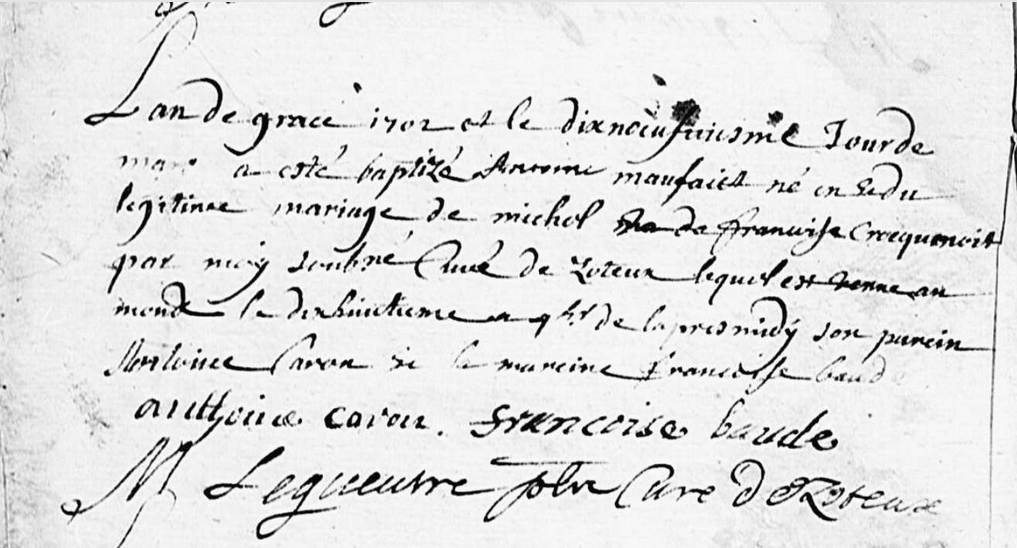 Lan de grace 1702 et le dixnoeufuiesme Jour de
mars a esté baptizé Antoine maufaict né en et du
legitime mariage de michel et de francoise Crocquenoit
par moy soubné Curé de Zoteux lequel est venue au
monde le dixhuitieme a 4 hr de lapresmidy son parein
Anthoine Caron et la mareine francoise baude
anthoine caron. francoise baude
M Lequeutre pbtre Curé de Zoteux